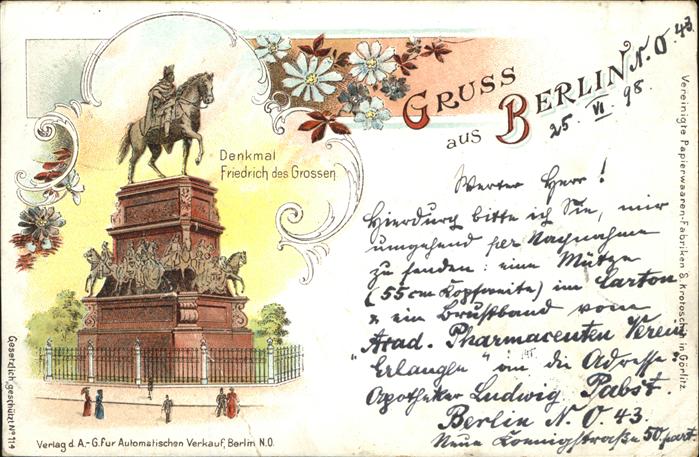 GRUSS
aus BERLIN N. O. 43.
25. VI 98.
Denkmal
Friedrich des Grossen.
Werter Herr!
Hierdurch bitte ich Sie, mir
umgehend per Nachnahme
zu senden: eine Mütze
(55 cm Kopfweite) im Carton
& ein Brustband vom
Acad. Pharmaceuten Verein
"Erlangen" an die Adresse:
Apotheker Ludwig Pabst.
Berlin N. O. 43.
Neue Koenigstraße 50. part.
Gesetzlich geschützt No 114
Verlag d. A.-G. für Automatischen Verkauf, Berlin N.O.
Vereinigte Papierwaaren-Fabriken S. Krotoschin in Görlitz.